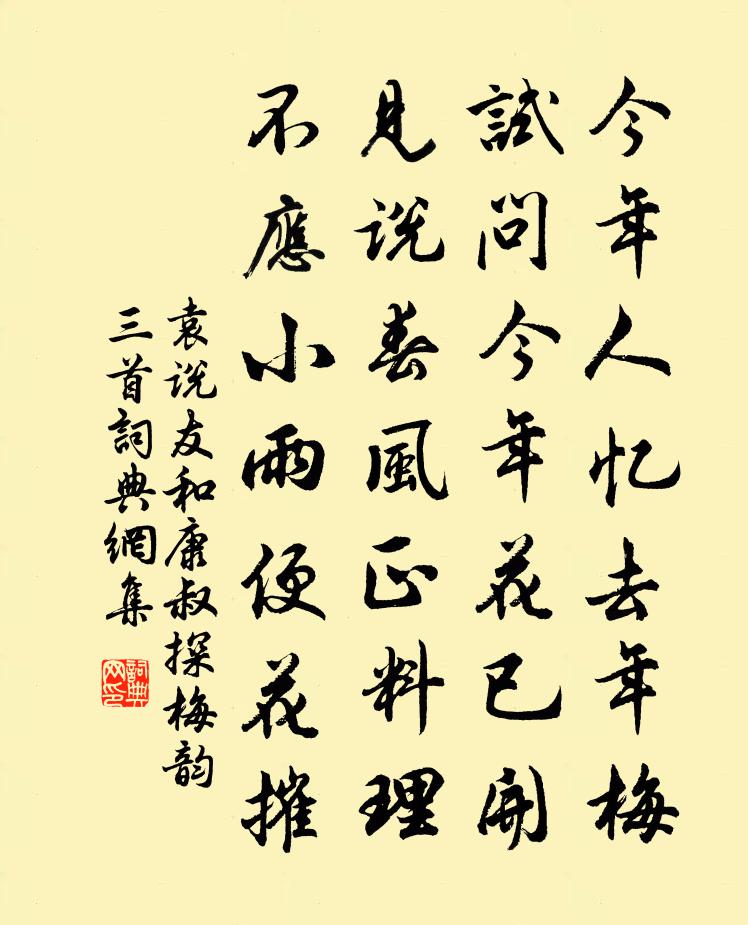 今年人忆去年梅
試問今年花已開
見説春風正料理
不應小雨便花摧
袁説友和康叔探梅韵
三首詞典網集
詞典网印